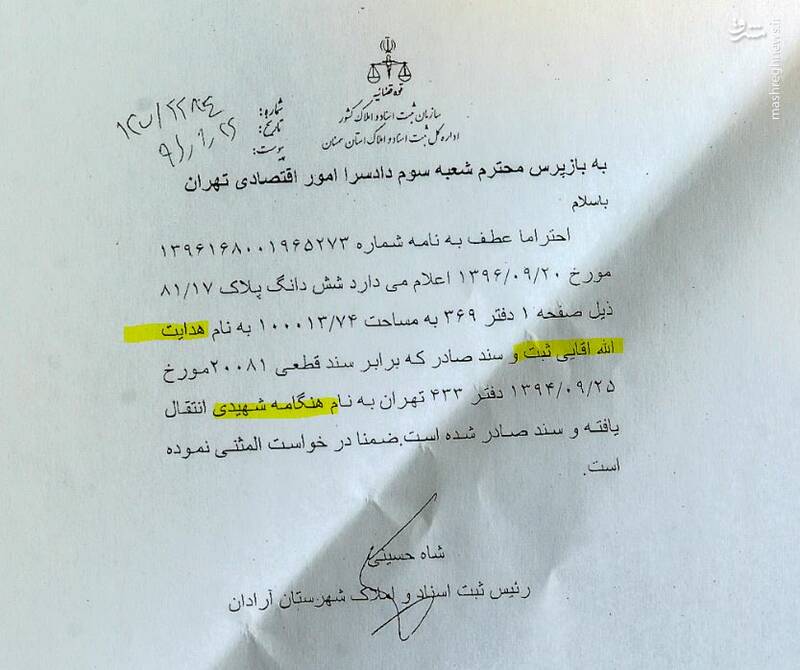 قوه قضائیه
سازمان ثبت اسناد و املاک کشور
اداره کل ثبت اسناد و املاک استان سمنان
شماره:
تاریخ:
پیوست:
به بازپرس محترم شعبه سوم دادسرا امور اقتصادی تهران
باسلام
احتراما عطف به نامه شماره ۱۳۹۶۱۶۸۰۰۱۹۶۵۲۷۳
مورخ ۱۳۹۶/۰۹/۲۰ اعلام می دارد شش دانگ پلاک ۸۱/۱۷
ذیل صفحه ۱ دفتر ۳۶۹ به مساحت ۱۰۰۰۱۳/۷۴ به نام هدایت
الله اقایی ثبت و سند صادر که برابر سند قطعی ۲۰۰۸۱مورخ
۱۳۹۴/۰۹/۲۵ دفتر ۴۳۳ تهران به نام هنگامه شهیدی انتقال
یافته و سند صادر شده است.ضمنا در خواست المثنی نموده
است.
شاه حسینی
رئیس ثبت اسناد و املاک شهرستان آرادان
مشرق
mashreghnews.ir